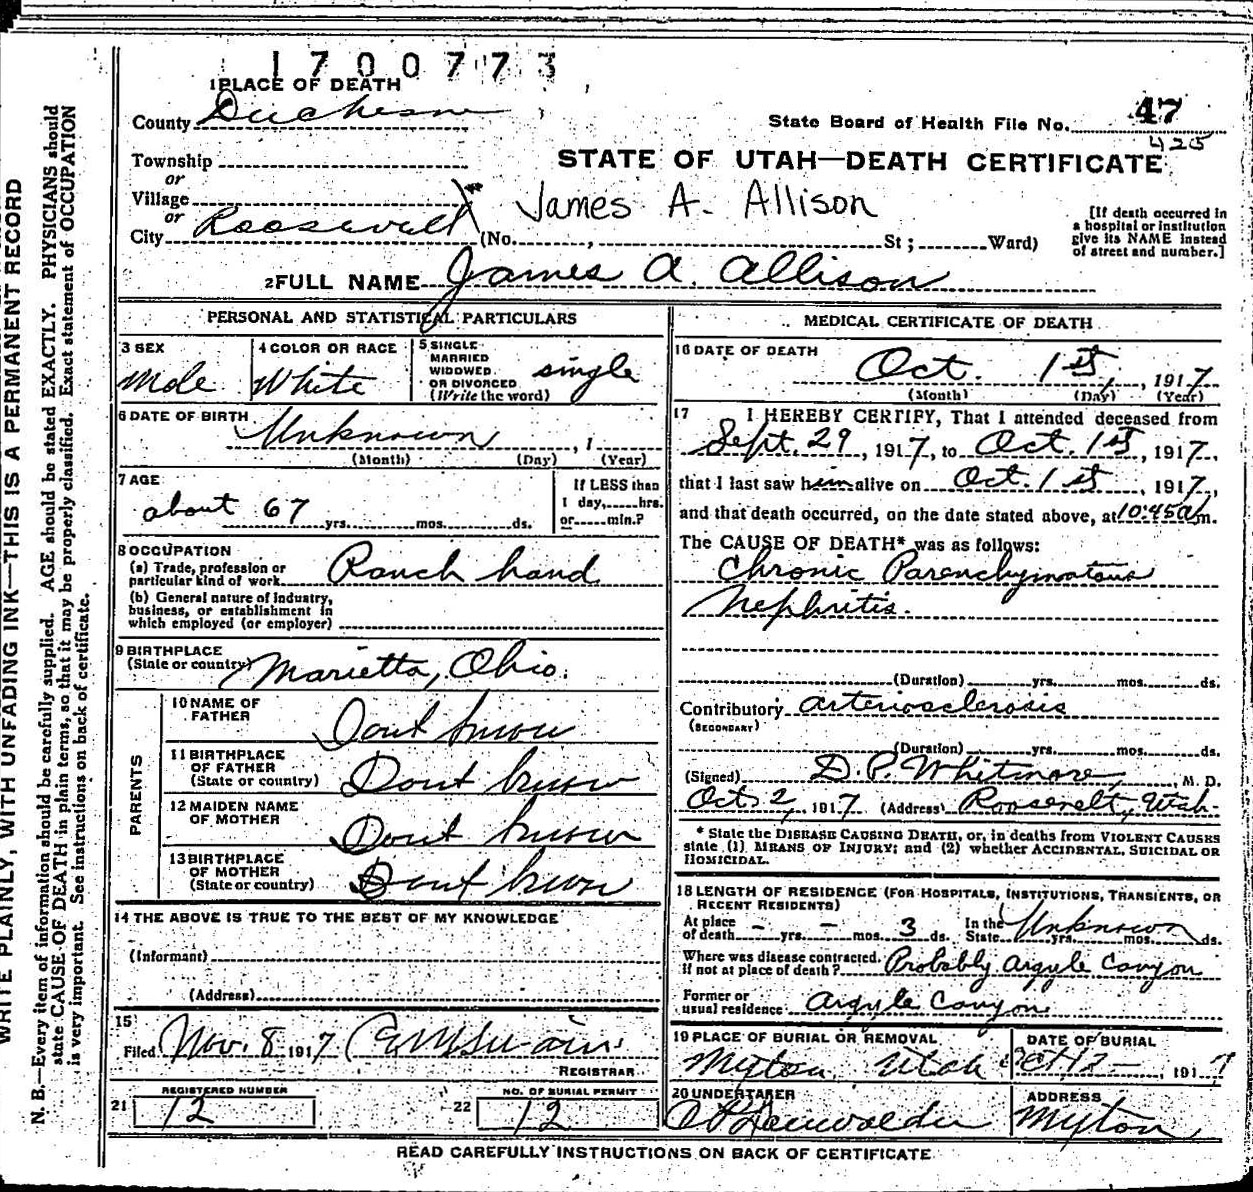 1700773
1 PLACE OF DEATH
County Duchesne
State Board of Health File No. 47
425
Township
or
Village
or
City Roosevelt
STATE OF UTAH—DEATH CERTIFICATE
James A. Allison
(No. , St; Ward)
[If death occurred in
a hospital or institution
give its NAME instead
of street and number.]
2 FULL NAME James A. Allison
PERSONAL AND STATISTICAL PARTICULARS
3 SEX
Male
4 COLOR OR RACE
White
5 SINGLE
MARRIED
WIDOWED
OR DIVORCED
(Write the word)
single
6 DATE OF BIRTH
Unknown , 1
(Month) (Day) (Year)
7 AGE
about 67 yrs. mos. ds.
If LESS than
1 day, hrs.
or min.?
8 OCCUPATION
(a) Trade, profession or
particular kind of work Ranch hand
(b) General nature of industry,
business, or establishment in
which employed (or employer)
9 BIRTHPLACE
(State or country) Marietta, Ohio.
PARENTS
10 NAME OF
FATHER
Dont know
11 BIRTHPLACE
OF FATHER
(State or country) Dont know
12 MAIDEN NAME
OF MOTHER
Dont know
13 BIRTHPLACE
OF MOTHER
(State or country) Dont know
14 THE ABOVE IS TRUE TO THE BEST OF MY KNOWLEDGE
(Informant)
(Address)
15
Filed Nov. 8 1917
REGISTRAR
21
REGISTERED NUMBER
12
22
NO. OF BURIAL PERMIT
12
MEDICAL CERTIFICATE OF DEATH
16 DATE OF DEATH
Oct. 1st, 1917
(Month) (Day) (Year)
17 I HEREBY CERTIFY, That I attended deceased from
Sept. 29, 1917, to Oct. 1st, 1917,
that I last saw him alive on Oct. 1st, 1917,
and that death occurred, on the date stated above, at 10:45 a m.
The CAUSE OF DEATH* was as follows:
Chronic Parenchymatous
Nephritis.
(Duration) yrs. mos. ds.
Contributory arteriosclerosis
(SECONDARY)
(Duration) yrs. mos. ds.
(Signed) D. P. Whitmore, M. D.
Oct 2, 1917 (Address) Roosevelt, Utah.
* State the DISEASE CAUSING DEATH, or, in deaths from VIOLENT CAUSES
state (1) MEANS OF INJURY; and (2) whether ACCIDENTAL, SUICIDAL OR
HOMICIDAL.
18 LENGTH OF RESIDENCE (FOR HOSPITALS, INSTITUTIONS, TRANSIENTS, OR
RECENT RESIDENTS)
At place
of death - yrs. - mos. 3 ds.
In the
State Unknown yrs. mos. ds.
Where was disease contracted.
if not at place of death? Probably Argyle Canyon
Former or
usual residence Argyle Canyon
19 PLACE OF BURIAL OR REMOVAL
Myton, Utah
DATE OF BURIAL
Oct 12 - , 1917
20 UNDERTAKER
ADDRESS
Myton,
READ CAREFULLY INSTRUCTIONS ON BACK OF CERTIFICATE
WRITE PLAINLY, WITH UNFADING INK—THIS IS A PERMANENT RECORD
N. B.—Every item of information should be carefully supplied. AGE should be stated EXACTLY. PHYSICIANS should
state CAUSE OF DEATH in plain terms, so that it may be properly classified. Exact statement of OCCUPATION
is very important. See instructions on back of certificate.